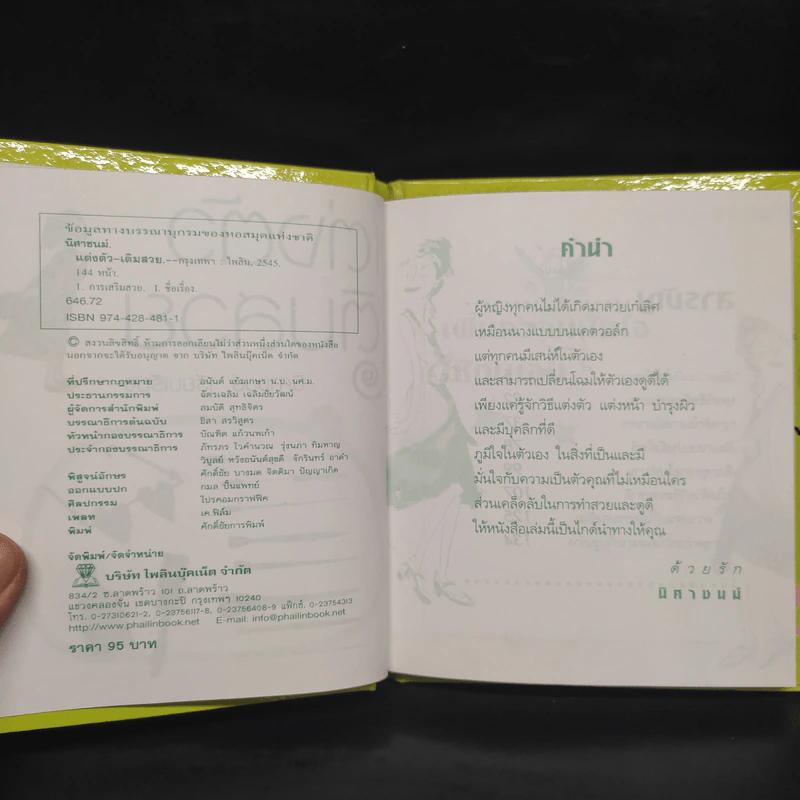 ข้อมูลทางบรรณานุกรมของหอสมุดแห่งชาติ
นิศาชนม์.
แต่งตัว-เติมสวย.--กรุงเทพฯ : ไพลิน, 2545.
144 หน้า.
1. การเสริมสวย. I. ชื่อเรื่อง.
646.72
ISBN 974-428-481-1
© สงวนลิขสิทธิ์ ห้ามการลอกเลียนไม่ว่าส่วนหนึ่งส่วนใดของหนังสือ
นอกจากจะได้รับอนุญาต จาก บริษัท ไพลินบุ๊คเน็ต จำกัด
ที่ปรึกษากฎหมาย อนันต์ แย้มเกษร น.บ. นศ.ม.
ประธานกรรมการ ฉัตรเฉลิม เฉลิมชัยวัฒน์
ผู้จัดการสำนักพิมพ์ สมบัติ สุทธิจิตร
บรรณาธิการต้นฉบับ ธิสา สรวิสูตร
หัวหน้ากองบรรณาธิการ บัณฑิต แก้วนพเก้า
ประจำกองบรรณาธิการ ภัทรภร ไวคำนวณ รุ่งนภา ทิมหาญ
วิบูลย์ หวังอนันต์สุขดี จักรินทร์ อาคำ
พิสูจน์อักษร ศักดิ์ชัย บางมด จิตติมา ปัญญาเกิด
ออกแบบปก กมล ปิ่นแพทย์
ศิลปกรรม โปรคอมกราฟฟิค
เพลท เค.ฟิล์ม
พิมพ์ ศักดิ์ชัยการพิมพ์
จัดพิมพ์/จัดจำหน่าย
บริษัท ไพลินบุ๊คเน็ต จำกัด
834/2 ซ.ลาดพร้าว 101 ถ.ลาดพร้าว
แขวงคลองจั่น เขตบางกะปิ กรุงเทพฯ 10240
โทร. 0-27310621-2, 0-23756117-8, 0-23756408-9 แฟ็กซ์. 0-23754313
http://www.phailinbook.net E-mail: info@phailinbook.net
ราคา 95 บาท
คำนำ
ผู้หญิงทุกคนไม่ได้เกิดมาสวยเก๋เลิศ
เหมือนนางแบบบนแคตวอล์ก
แต่ทุกคนมีเสน่ห์ในตัวเอง
และสามารถเปลี่ยนโฉมให้ตัวเองดูดีได้
เพียงแค่รู้จักวิธีแต่งตัว แต่งหน้า บำรุงผิว
และมีบุคลิกที่ดี
ภูมิใจในตัวเอง ในสิ่งที่เป็นและมี
มั่นใจกับความเป็นตัวคุณที่ไม่เหมือนใคร
ส่วนเคล็ดลับในการทำสวยและดูดี
ให้หนังสือเล่มนี้เป็นไกด์นำทางให้คุณ
ด้วยรัก
นิศาชนม์